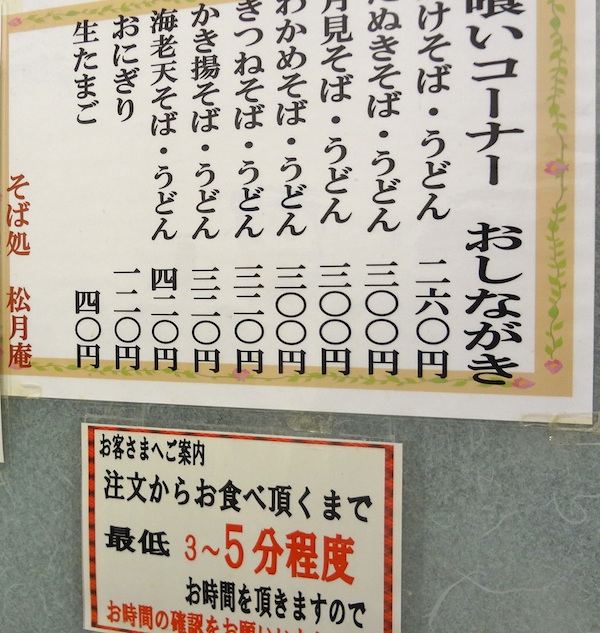 喰いコーナー おしながき
けそば・うどん 二六〇円
たぬきそば・うどん 三〇〇円
月見そば・うどん 三〇〇円
わかめそば・うどん 三〇〇円
きつねそば・うどん 三二〇円
かき揚そば・うどん 三二〇円
海老天そば・うどん 四二〇円
おにぎり 一二〇円
生たまご 四〇円
そば処 松月庵
お客さまへご案内
注文からお食べ頂くまで
最低 3~5分程度
お時間を頂きますので
お時間の確認をお願い